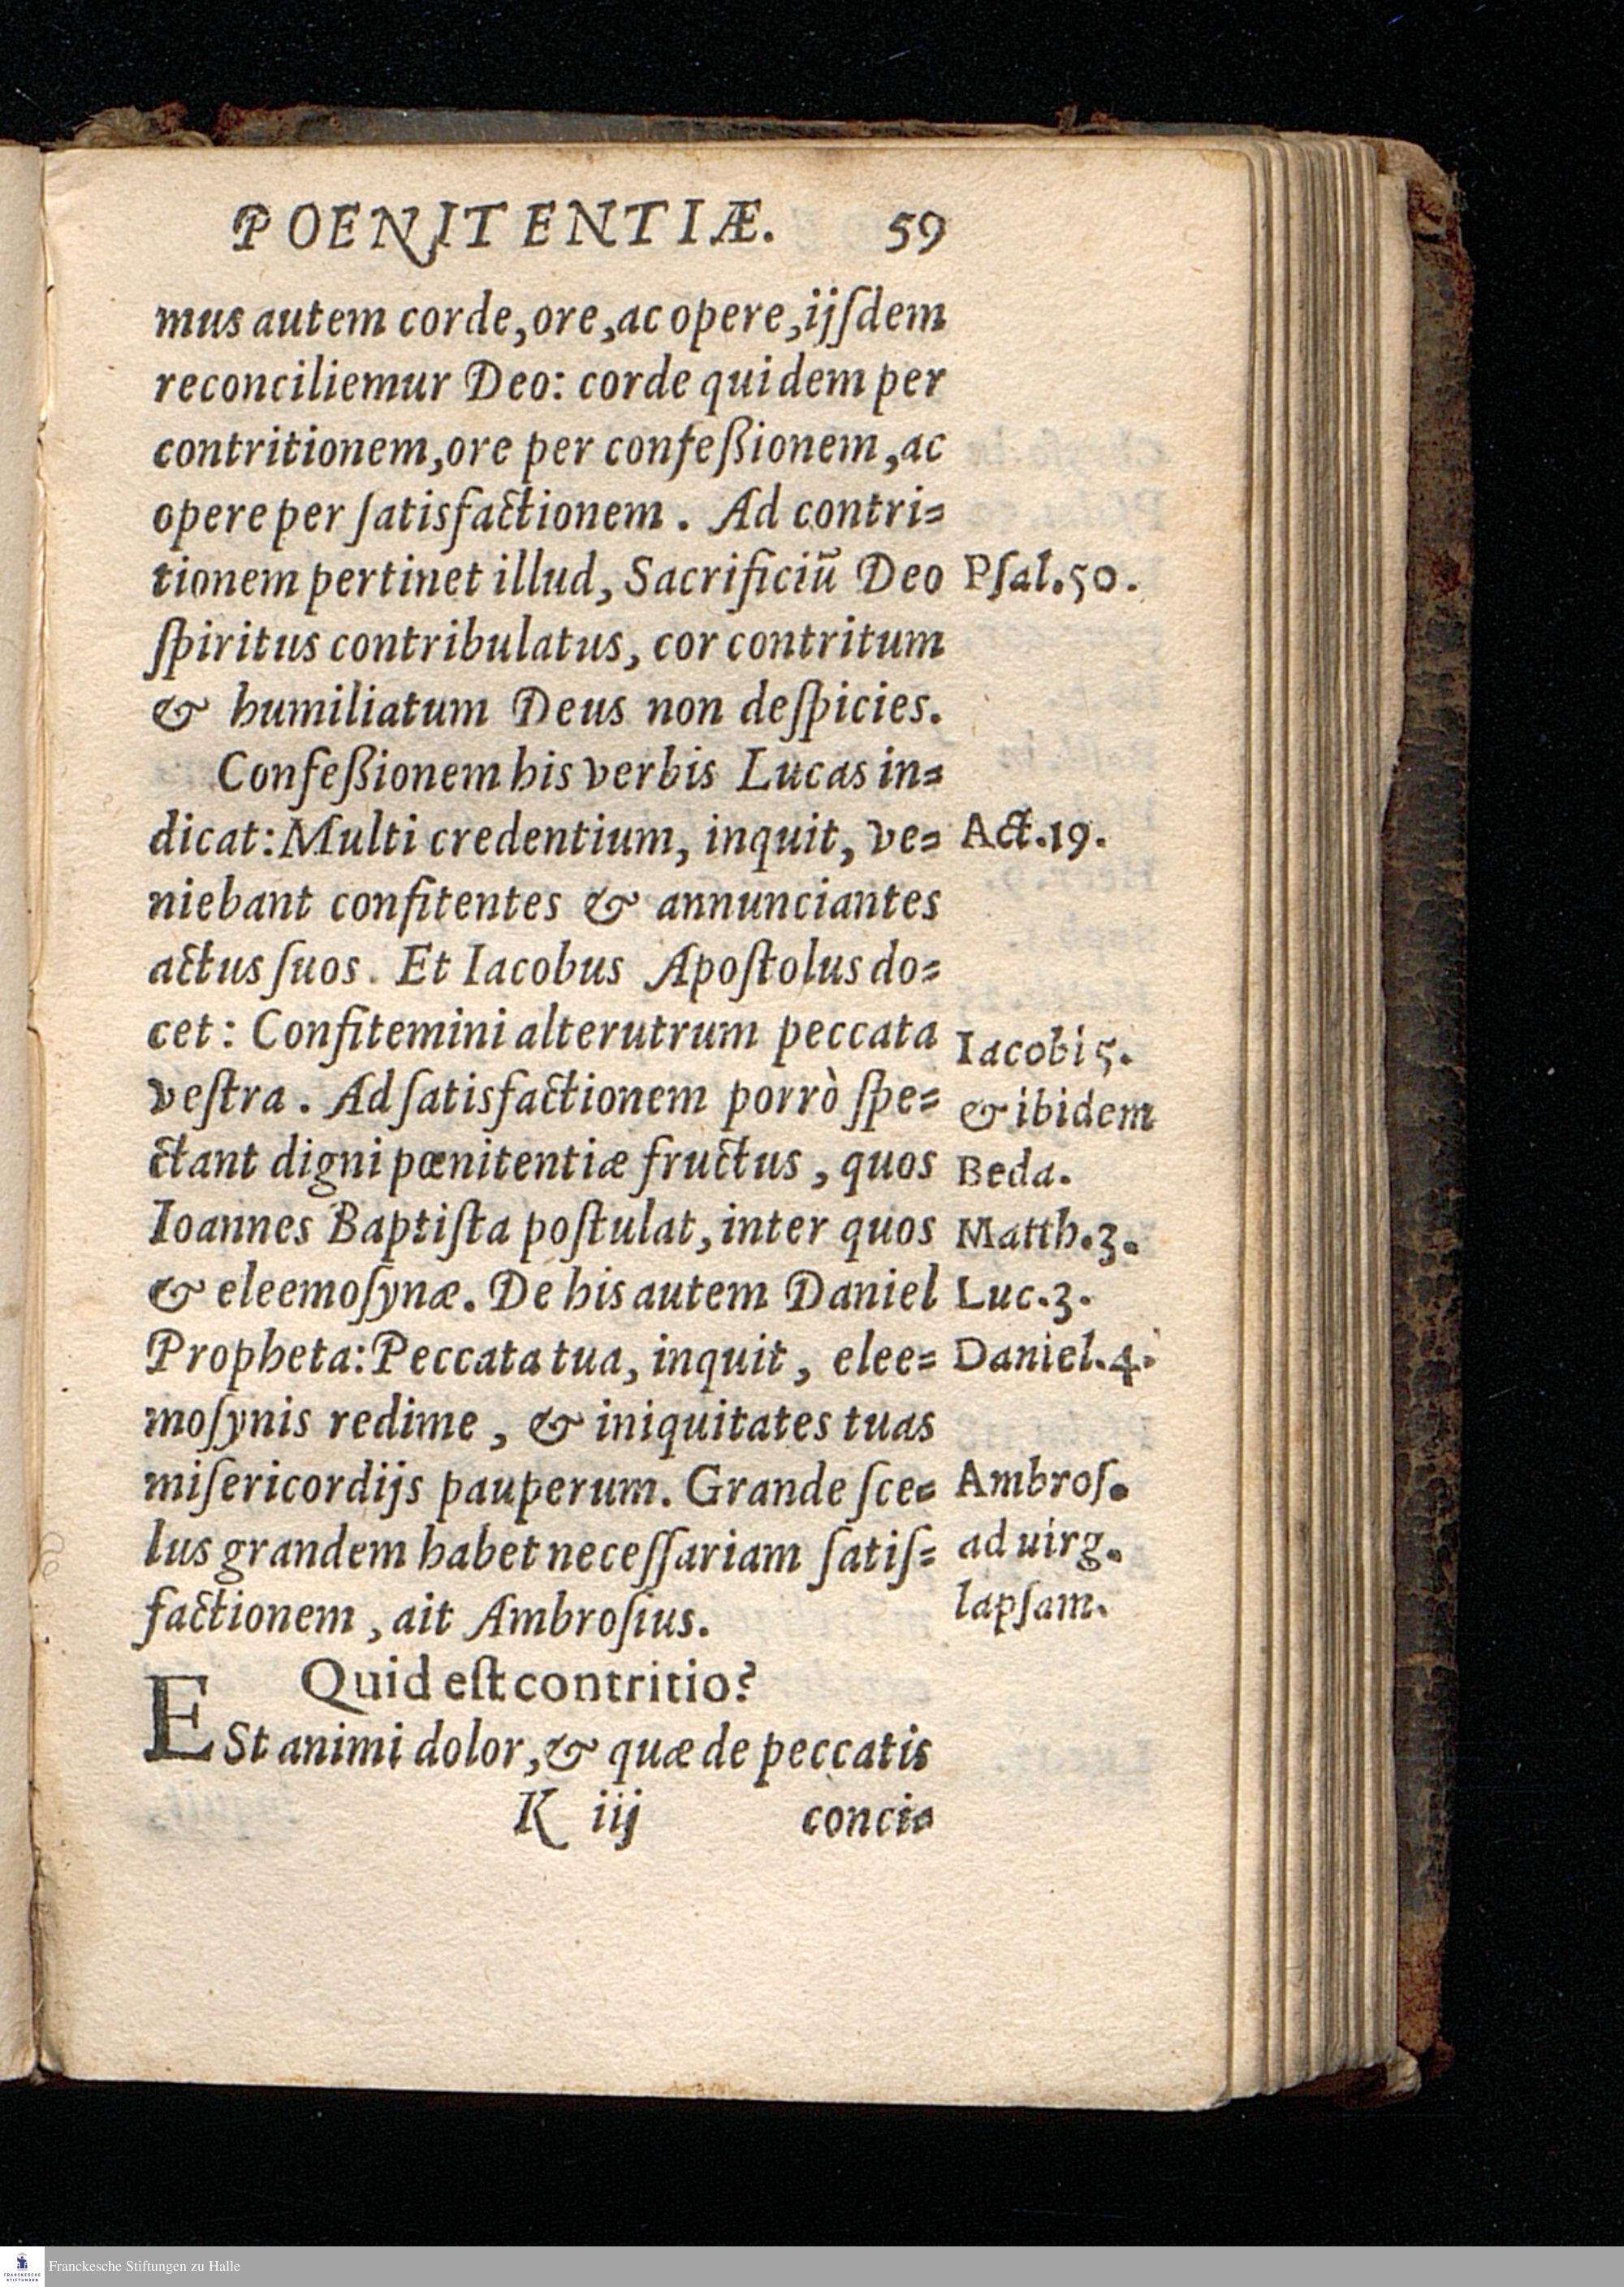 POENITENTIÆ. 59
mus autem corde, ore, ac opere, ijſdem
reconciliemur Deo: corde quidem per
contritionem, ore per confeßionem, ac
opere per ſatisfactionem. Ad contri=
tionem pertinet illud, Sacrificiũ Deo
Pſal. 50.
ſpiritus contribulatus, cor contritum
& humiliatum Deus non deſpicies.
Confeßionem his verbis Lucas in=
dicat: Multi credentium, inquit, ve=
Act. 19.
niebant confitentes & annunciantes
actus ſuos. Et Iacobus Apoſtolus do=
cet: Confitemini alterutrum peccata
Iacobi 5.
veſtra. Ad ſatisfactionem porrò ſpe=
& ibidem
ctant digni pœnitentiæ fructus, quos
Beda.
Ioannes Baptiſta poſtulat, inter quos
Matth. 3.
& eleemoſynæ. De his autem Daniel
Luc. 3.
Propheta: Peccata tua, inquit, elee=
Daniel. 4.
moſynis redime, & iniquitates tuas
miſericordijs pauperum. Grande ſce=
Ambroſ.
lus grandem habet neceſſariam ſatiſ=
ad uirg.
factionem, ait Ambroſius.
lapſam.
Quid eſt contritio?
ESt animi dolor, & quæ de peccatis
K iij concia
Franckesche Stiftungen zu Halle
FRANCKESCHE
STIFTUNGEN